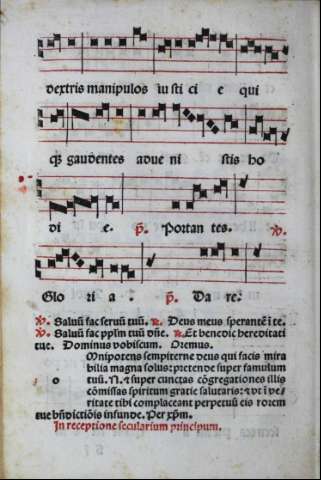 dextris manipulos iusti ci e qui
q̃ gaudentes adue ni stis ho
di e. p̃. Portan tes. ℣.
Glo ri a. p̃. Da re.
℣. Saluũ fac seruũ tuũ. ℟. Deus meus sperantẽ ĩ te.
℣. Saluũ fac pp̃lm tuũ dñe. ℟. Et benedic hereditati
tue. Dominus vobiscum. Oremus.
Omnipotens sempiterne deus qui facis mira
bilia magna solus: pretende super famulum
o tuũ. N. ⁊ super cunctas cõgregationes illis
cõmissas spiritum gratie salutaris: ⁊ vt ĩ ve-
ritate tibi complaceant perpetuũ eis rorem
tue bñdictiõis infunde. Per xp̃m.
In receptione secularium principum.